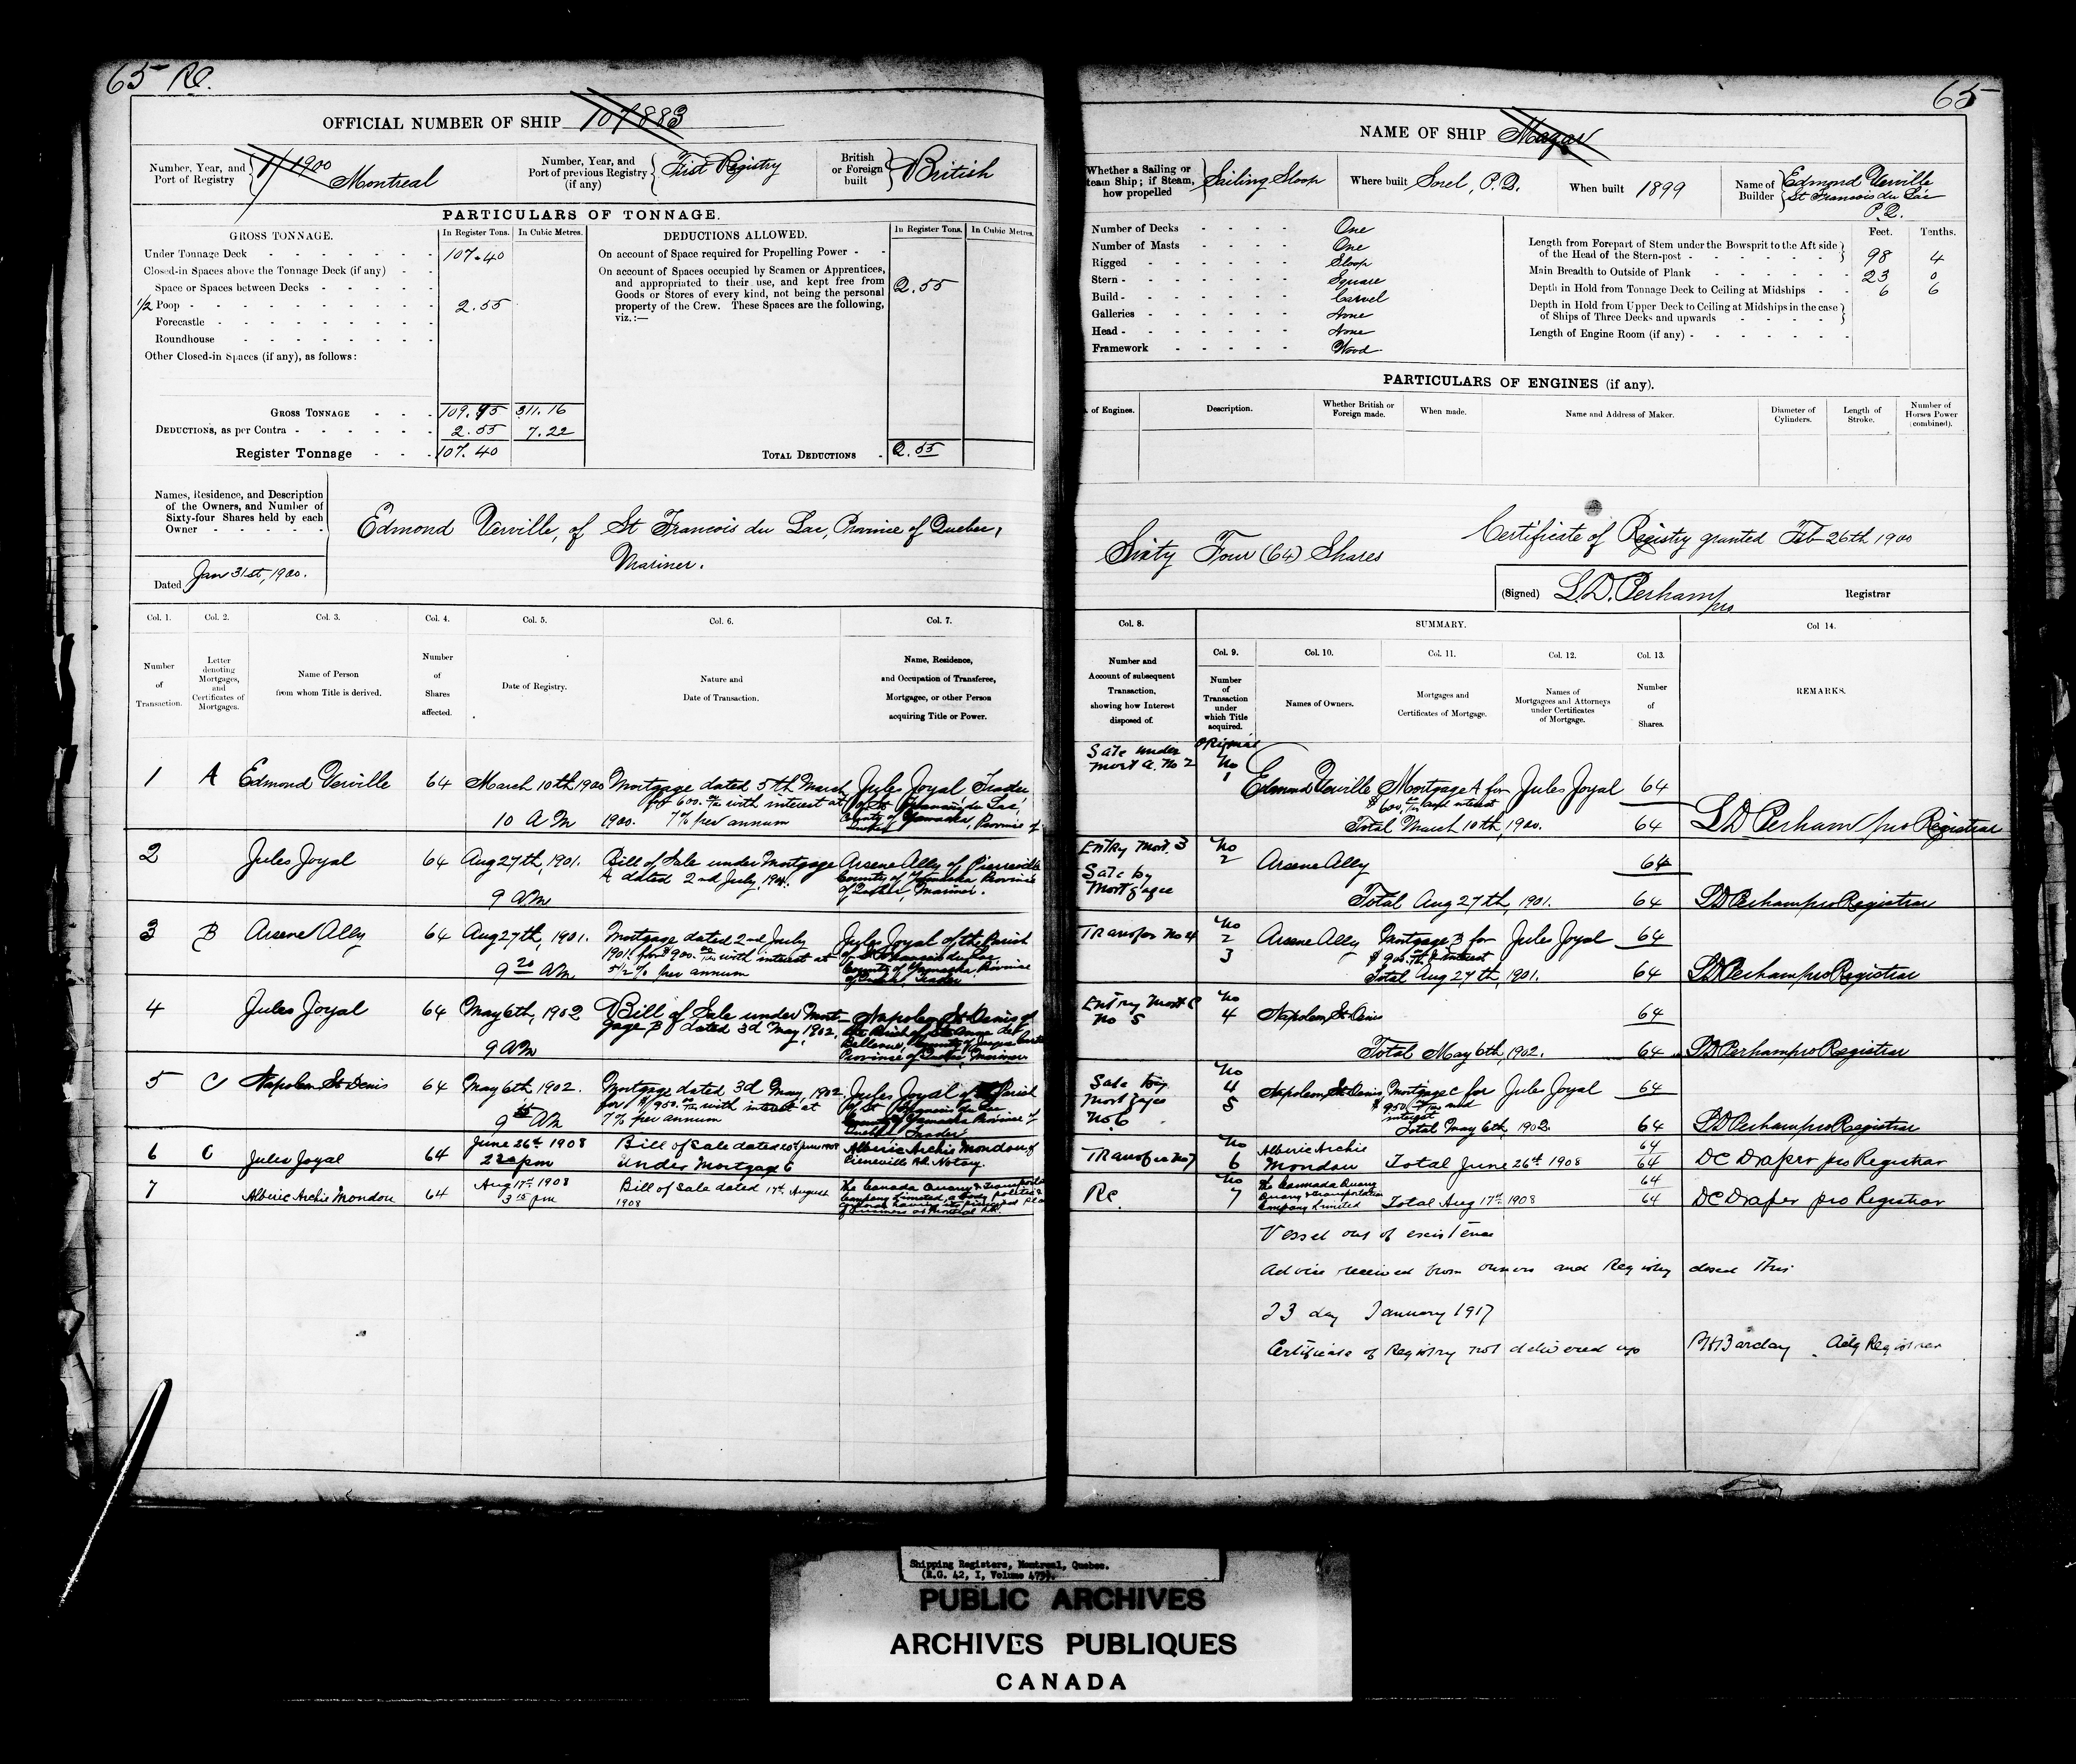 65 Re.
OFFICIAL NUMBER OF SHIP 107883
Number, Year, and Port of Registry 1/1900 Montreal
Number, Year, and Port of previous Registry (if any) First Registry
British or Foreign built British
PARTICULARS OF TONNAGE.
GROSS TONNAGE.
In Register Tons.
In Cubic Metres.
DEDUCTIONS ALLOWED.
In Register Tons.
In Cubic Metres.
Under Tonnage Deck 107.40
Closed-in Spaces above the Tonnage Deck (if any)
Space or Spaces between Decks
1/2 Poop 2.55
Forecastle
Roundhouse
Other Closed-in Spaces (if any), as follows:
On account of Space required for Propelling Power
On account of Spaces occupied by Seamen or Apprentices,
and appropriated to their use, and kept free from
Goods or Stores of every kind, not being the personal
property of the Crew. These Spaces are the following,
viz.:—
2.55
GROSS TONNAGE 109.95 311.16
DEDUCTIONS, as per Contra 2.55 7.22
Register Tonnage 107.40
TOTAL DEDUCTIONS 2.55
Names, Residence, and Description
of the Owners, and Number of
Sixty-four Shares held by each
Owner
Dated Jan 31st, 1900.
Edmond Verville, of St Francois du Lac, Province of Quebec,
Mariner.
Col. 1. Col. 2. Col. 3. Col. 4. Col. 5. Col. 6. Col. 7.
Number of Transaction.
Letter denoting Mortgages, and Certificates of Mortgages.
Name of Person from whom Title is derived.
Number of Shares affected.
Date of Registry.
Nature and Date of Transaction.
Name, Residence, and Occupation of Transferee, Mortgagee, or other Person acquiring Title or Power.
1 A Edmond Verville 64 March 10th 1900 Mortgage dated 5th March Jules Joyal, Trader
for 600.00 with interest at of St Francois du Lac,
10 AM 1900. 7% per annum County of Yamaska, Province of
Quebec
2 Jules Joyal 64 Aug 27th, 1901. Bill of Sale under Mortgage Arsene Ally of Pierreville
A dated 2nd July, 1901. County of Yamaska Province
9 AM of Quebec, Mariner.
3 B Arsene Ally 64 Aug 27th, 1901. Mortgage dated 2nd July Jules Joyal of the Parish
1901. for $900. with interest at of St Francois du Lac,
9 20 AM 5 1/2 % per annum County of Yamaska, Province
of Quebec, Trader
4 Jules Joyal 64 May 6th, 1902 Bill of Sale under Mort- Napoleon St Denis of
gage B dated 3d May, 1902. the Parish of Ste Anne de
9 AM Bellevue, County of Jacques Cartier
Province of Quebec, Mariner
5 C Napoleon St Denis 64 May 6th, 1902. Mortgage dated 3d May, 1902 Jules Joyal of Parish
for $950. with interest at of St Francois du Lac
9 15 AM 7% per annum County of Yamaska Province of
Quebec, Trader
6 C Jules Joyal 64 June 26th 1908 Bill of Sale dated Alberic Archie Mondou, of
2 30 pm under Mortgage C Pierreville P.Q. Notary.
7 Alberic Archie Mondou 64 Aug 17th 1908 Bill of Sale dated 17th August The Canada Quarry & Transportation
3 15 pm 1908 Company Limited, a body politic &
of business at Montreal P.Q.
65
NAME OF SHIP Magar
Whether a Sailing or Steam Ship; if Steam, how propelled Sailing Sloop
Where built Sorel, P.Q.
When built 1899
Name of Builder Edmond Verville St Francois du Lac P.Q.
Number of Decks One
Number of Masts One
Rigged Sloop
Stern Square
Build Carvel
Galleries None
Head None
Framework Wood
Feet. Tenths.
Length from Forepart of Stem under the Bowsprit to the Aft side
of the Head of the Stern-post 98 4
Main Breadth to Outside of Plank 23 0
Depth in Hold from Tonnage Deck to Ceiling at Midships 6 6
Depth in Hold from Upper Deck to Ceiling at Midships in the case
of Ships of Three Decks and upwards
Length of Engine Room (if any)
PARTICULARS OF ENGINES (if any).
of Engines.
Description.
Whether British or Foreign made.
When made.
Name and Address of Maker.
Diameter of Cylinders.
Length of Stroke.
Number of Horses Power (combined).
Sixty Four (64) Shares
Certificate of Registry granted Feb 26th 1900
(Signed) L.D. Perham pro Registrar
Col. 8. SUMMARY. Col 14.
Col. 9. Col. 10. Col. 11. Col. 12. Col. 13.
Number and Account of subsequent Transaction, showing how Interest disposed of.
Number of Transaction under which Title acquired.
Names of Owners.
Mortgages and Certificates of Mortgage.
Names of Mortgagees and Attorneys under Certificates of Mortgage.
Number of Shares.
REMARKS.
Sale under Original
Mort A. No 2 No 1 Edmond Verville Mortgage A for Jules Joyal 64
$600. and interest
Total March 10th, 1900. 64 LD Perham pro Registrar
Entry Mort. B No 2 Arsene Ally 64
Sale by
Mortgagee Total Aug 27th, 1901. 64 LD Perham pro Registrar
Transfer No 4 No 2 3 Arsene Ally Mortgage B for Jules Joyal 64
$900. & interest
Total Aug 27th, 1901. 64 LD Perham pro Registrar
Entry Mort C No 5 No 4 Napoleon St Denis 64
Total May 6th, 1902. 64 LD Perham pro Registrar
Sale by Mortgagee No. 6 No 4 5 Napoleon St Denis Mortgage C for Jules Joyal 64
$950 and interest
Total May 6th, 1902 64 LD Perham pro Registrar
Transfer No 7 No 6 Alberic Archie Mondou 64
Total June 26th 1908 64 DC Draper pro Registrar
Re. No 7 The Cannada Quarry Quarry & Transportation Company Limited 64
Total Aug 17th 1908 64 DC Draper pro Registrar
Vessel out of existence
Advice received from owners and Registry closed this
23 day January 1917
Certificate of Registry not delivered up Barclay Actg Registrar
Shipping Registers, Montreal, Quebec.
(R.G. 42, I, Volume
PUBLIC ARCHIVES
ARCHIVES PUBLIQUES
CANADA